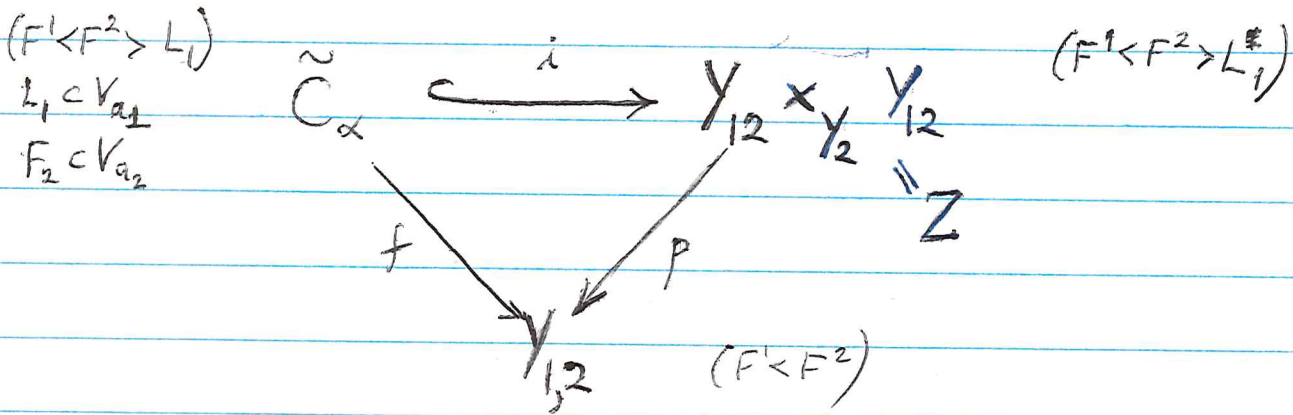 (F¹<F²>L₁)
L₁ ⊂ V_{a₁}
F₂ ⊂ V_{a₂}
C̃_α
i
Y₁₂ ×_{Y₂} Y₁₂
(F¹<F²>L₁*)
= Z
f
p
Y₁,₂
(F¹<F²)